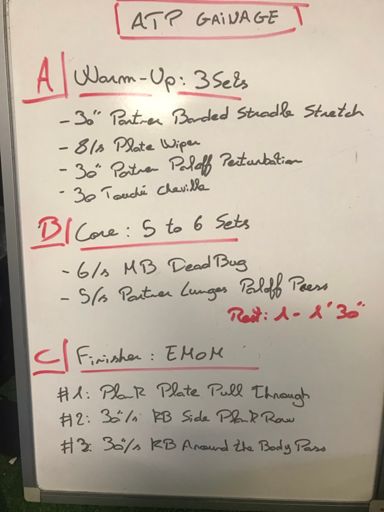 ATP GAINAGE
A| Warm-Up: 3 Sets
- 30" Partner Banded Stradle Stretch
- 8/s Plate Wiper
- 30" Partner Paloff Perturbation
- 30 Touché cheville
B| Core: 5 to 6 Sets
- 6/s MB DeadBug
- 5/s Partner Lunges Paloff Press
Rest: 1 - 1'30"
C| Finisher: EMOM
#1: Plank Plate Pull Through
#2: 30"/s KB Side Plank Row
#3: 30"/s KB Around the Body Pass